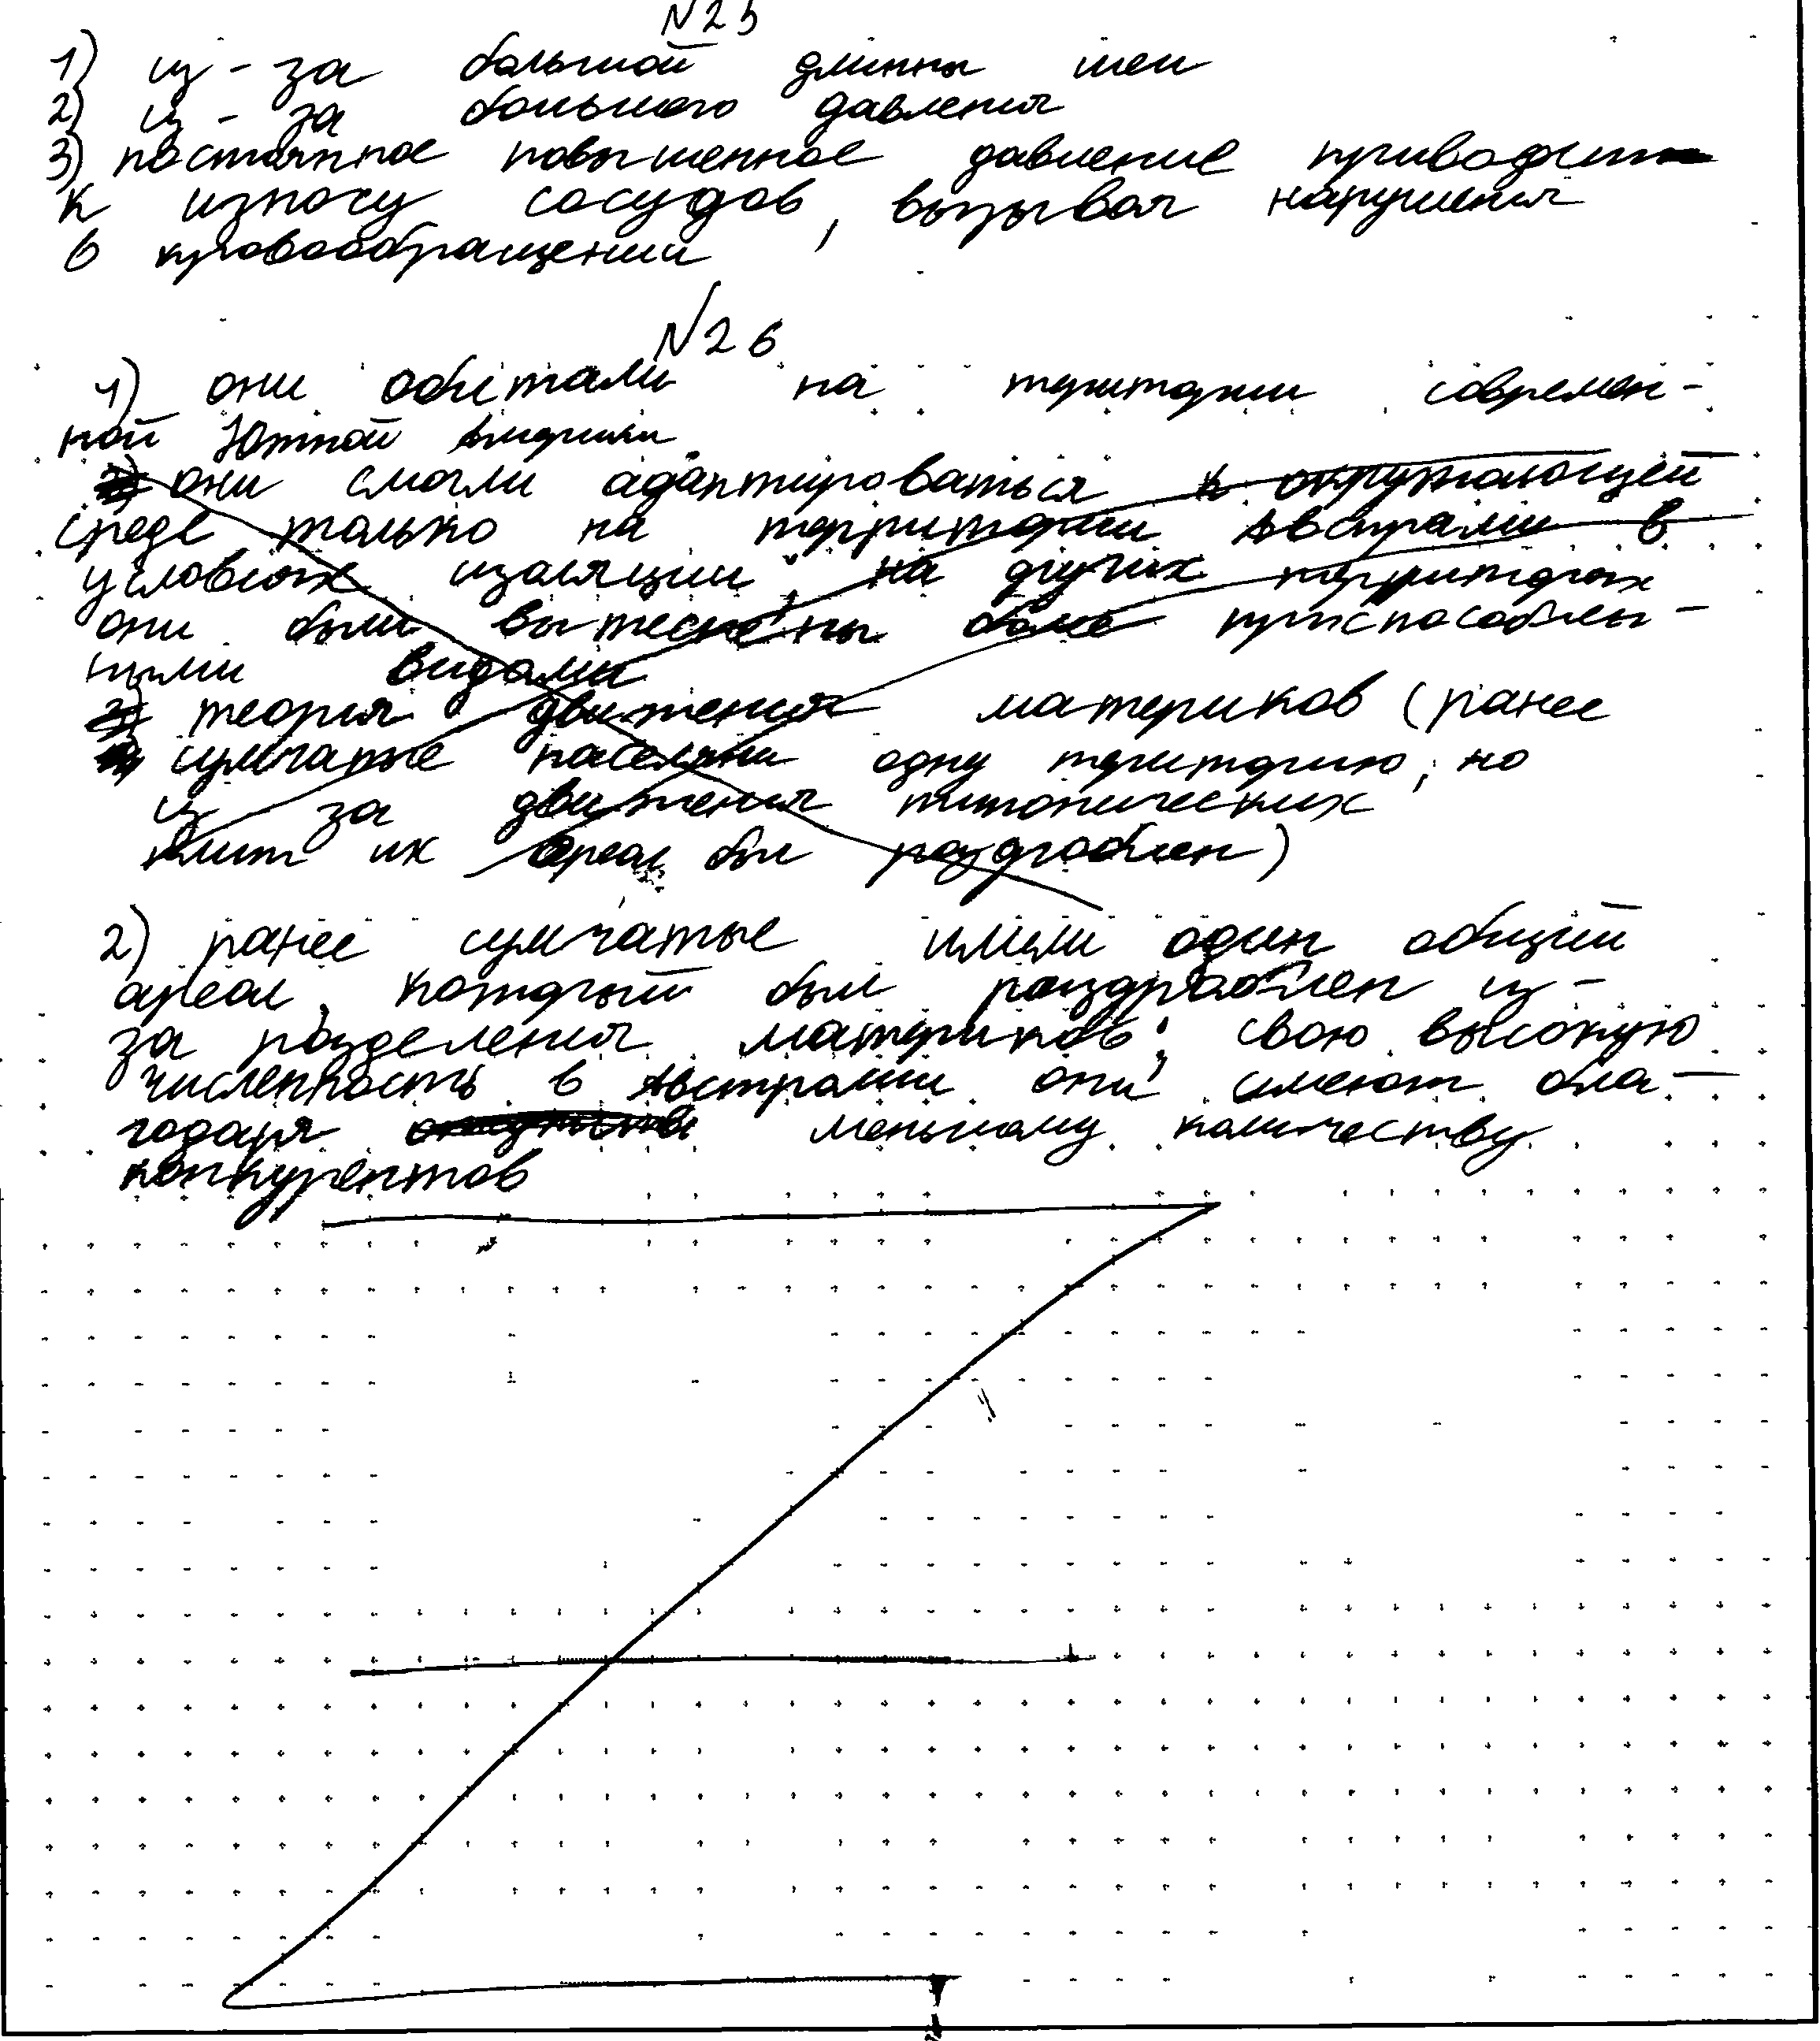 N25
1) из-за большой длинны шеи
2) из-за большого давления
3) постоянное повышенное давление приводит
к износу сосудов, вызывая нарушения
в кровообращении
N26
1) они обитали на територии современ-
ной Южной Америки
они смогли адаптироваться к окружающей
среде только на территории Австралии в
условиях изоляции, на других территориях
они были вытеснены более приспособлен-
ными видами
теория движения материков (ранее
сумчатые населяли одну територию, но
из за движения
плит их ареал был раздроблен)
2) ранее сумчатые имели один общий
ареал, который был раздроблен из-
за разделения материков; свою высокую
численность в Австралии они имеют бла-
годаря меньшему количеству
конкурентов